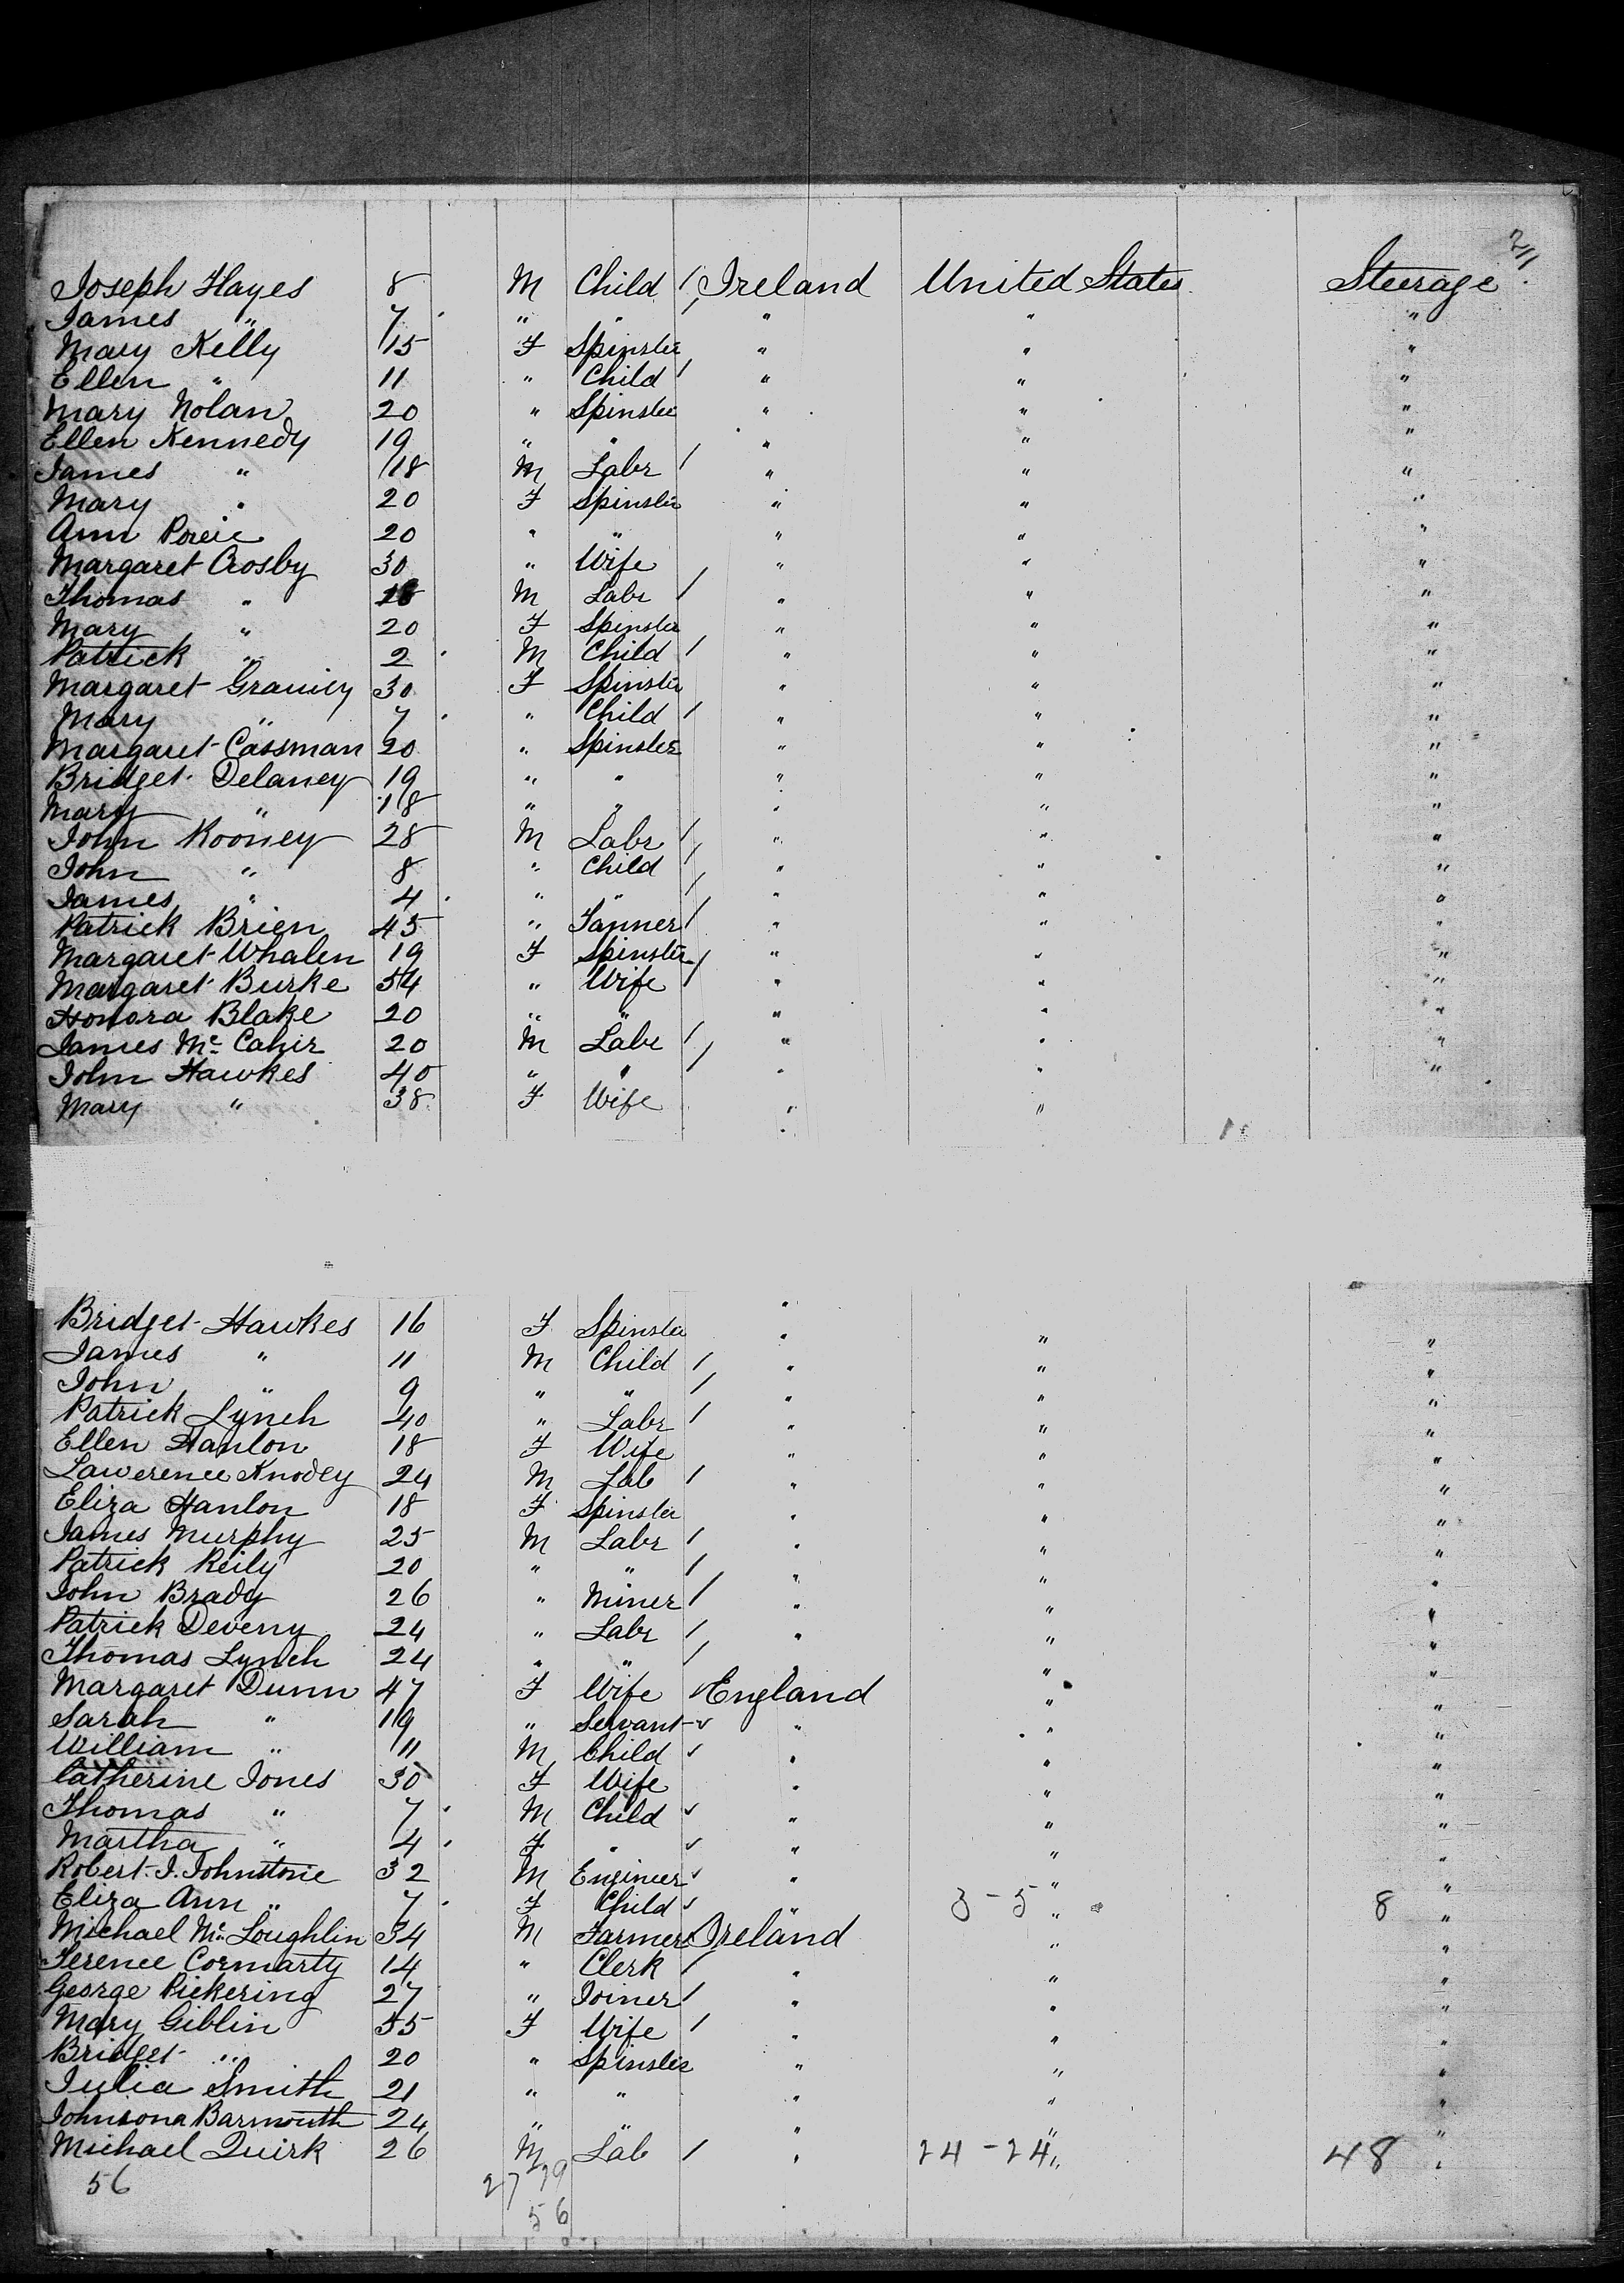 211
Joseph Hayes 8 M Child / Ireland United States Steerage
James " 7 " " / " " "
Mary Kelly 15 F Spinster " " "
Ellen " 11 " Child / " " "
Mary Nolan 20 " Spinster " " "
Ellen Kennedy 19 " " " " "
James " 18 M Labr / " " "
Mary " 20 F Spinster " " "
Ann 20 " " " " "
Margaret Crosby 30 " Wife " " "
Thomas " M Labr / " " "
Mary " 20 F Spinster " " "
Patrick " 2 M Child / " " "
Margaret 30 F Spinster " " "
Mary " 7 " Child / " " "
Margaret Cassman 20 " Spinster " " "
Bridget Delaney 19 " " " " "
Mary " 18 " " " " "
John Rooney 28 M Labr / " " "
John " 8 " Child / " " "
James " 4 " " / " " "
Patrick Brien 45 " / " " "
Margaret Whalen 19 F Spinster " " "
Margaret Burke 54 " Wife / " " "
Honora Blake 20 " " " " "
James Mc Cahir 20 M Labr / " " "
John Hawkes 40 " " / " " "
Mary " 38 F Wife " "
Bridget Hawkes 16 F Spinster " " "
James " 11 M Child / " " "
John " 9 " " / " " "
Patrick Lynch 40 " Labr / " " "
Ellen Hanlon 18 F Wife " " "
Lawerence Knodey 24 M Lab / " " "
Eliza Hanlon 18 F Spinster " " "
James Murphy 25 M Labr / " " "
Patrick Reily 20 " " / " " "
John Brady 26 " Miner / " " "
Patrick Deveny 24 " Labr / " " "
Thomas Lynch 24 " " / " " "
Margaret Dunn 47 F Wife ✓ England " "
Sarah " 19 " Servant ✓ " " "
William " 11 M Child ✓ " " "
Catherine Jones 30 F Wife " " "
Thomas " 7 M Child ✓ " " "
Martha " 4 F " ✓ " " "
Robert J. Johnstone 32 M Engineer ✓ " " "
Eliza Ann " 7 F Child ✓ " 3 - 5 " 8 "
Michael Mc Loughlin 34 M Farmer Ireland " "
Terence Cormarty 14 " Clerk / " " "
George Pickering 27 " Joiner / " " "
Mary Giblin 55 F Wife / " " "
Bridget " 20 " Spinster " " "
Julia Smith 21 " " " " "
Johnsona Barmouth 24 " " " " "
Michael Quirk 26 M Lab / " 24 - 24 " 48 "
56 27 29
56